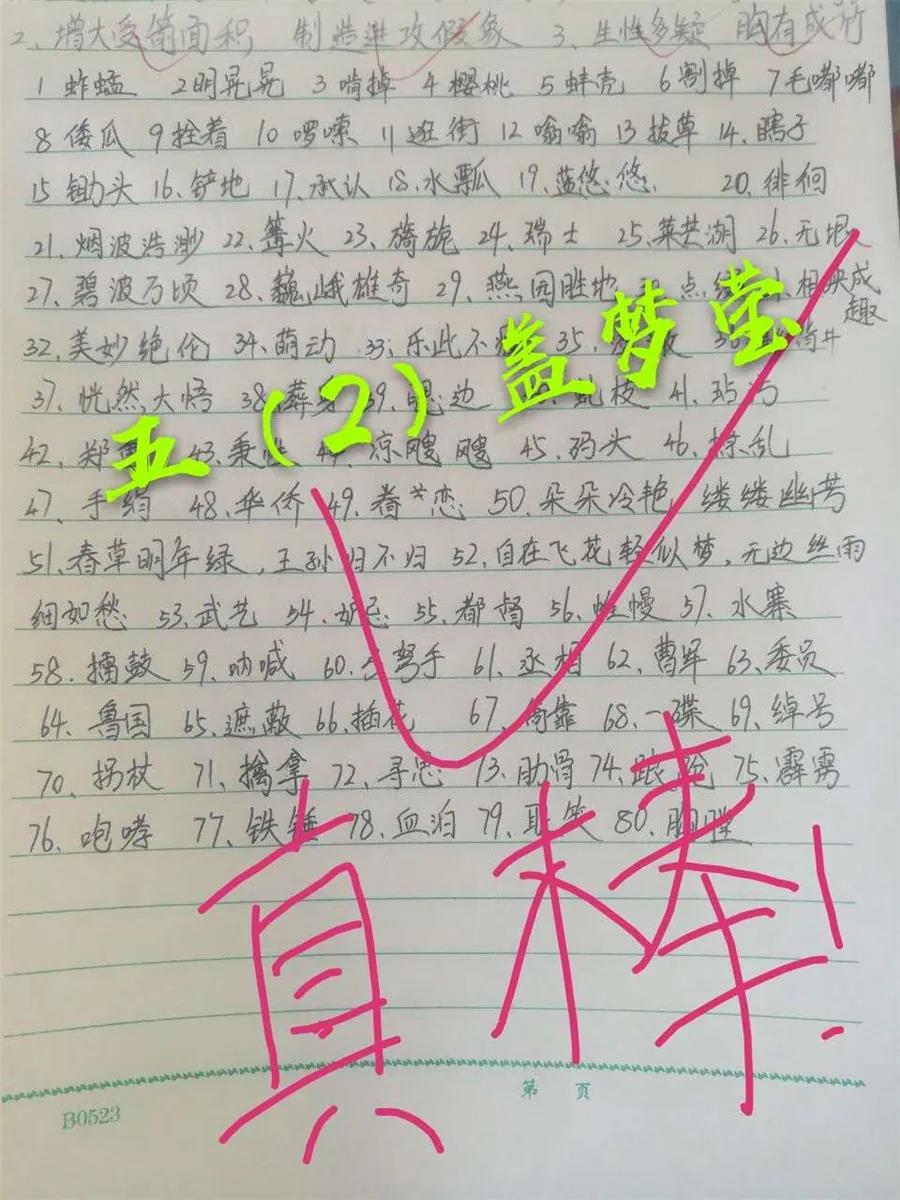 2、增大受箭面积, 制造进攻假象 3、生性多疑 胸有成竹
1 蚱蜢 2明晃晃 3 啃掉 4 樱桃 5 蚌壳 6 割掉 7毛嘟嘟
8 倭瓜 9拴着 10 啰嗦 11 逛街 12 嗡嗡 13 拔草 14、瞎子
15 锄头 16、铲地 17、承认 18、水瓢 19、蓝悠悠、 20、徘徊
21、烟波浩渺 22、篝火 23、旖旎 24、瑞士 25、莱芒湖 26、无垠
27、碧波万顷 28、巍峨雄奇 29、燕园胜地 点 相映成趣
32、美妙绝伦 34、萌动 33、乐此不 35、
37、恍然大悟 38、葬身 39、 边 枝 41、玷污
42、郑 43、秉性 44、凉飕飕 45、码头 46、撩乱
47、手绢 48、华侨 49、眷恋 50、朵朵冷艳 缕缕幽芳
51、春草明年绿,王孙归不归 52、自在飞花轻似梦,无边丝雨
细如愁 53、武艺 54、妒忌 55、都督 56、帷幔 57、水寨
58、擂鼓 59、呐喊 60、弓弩手 61、丞相 62、曹军 63、委员
64、鲁国 65、遮蔽 66、插花 67、倚靠 68、一碟 69、绰号
70、拐杖 71、擒拿 72、寻思 73、肋骨 74、踉跄 75、霹雳
76、咆哮 77、铁锤 78、血泊 79、耻笑 80、胸膛
五(2)盖梦莹
真棒!
第 页
B0523